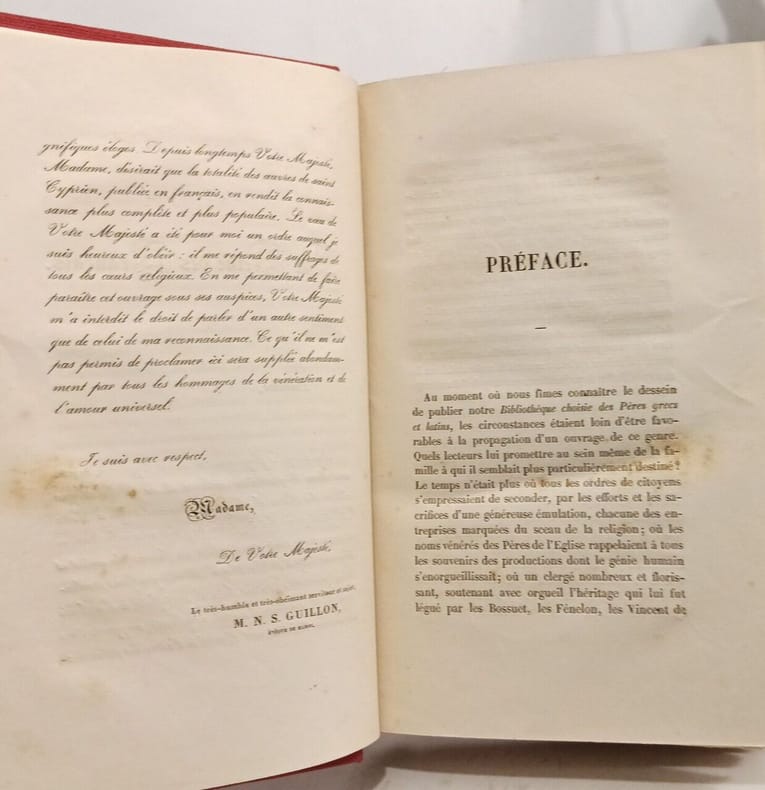 gnifiques éloges. Depuis longtemps Votre Majesté,
Madame, désirait que la totalité des œuvres de saint
Cyprien, publiée en français, en rendit la connais-
sance plus complète et plus populaire. Le vœu de
Votre Majesté a été pour moi un ordre auquel je
suis heureux d'obéir : il me répond des suffrages de
tous les cœurs religieux. En me permettant de faire
paraître cet ouvrage sous ses auspices, Votre Majesté
m'a interdit le droit de parler d'un autre sentiment
que de celui de ma reconnaissance. Ce qu'il ne m'est
pas permis de proclamer ici sera suppléé abondam-
ment par tous les hommages de la vénération et de
l'amour universel.
Je suis avec respect,
Madame,
De Votre Majesté,
Le très-humble et très-obéissant serviteur et sujet,
M. N. S. GUILLON,
ÉVÊQUE DE MAROC.
PRÉFACE.
Au moment où nous fîmes connaître le dessein
de publier notre Bibliothèque choisie des Pères grecs
et latins, les circonstances étaient loin d'être favo-
rables à la propagation d'un ouvrage de ce genre.
Quels lecteurs lui promettre au sein même de la fa-
mille à qui il semblait plus particulièrement destiné ?
Le temps n'était plus où tous les ordres de citoyens
s'empressaient de seconder, par les efforts et les sa-
crifices d'une généreuse émulation, chacune des en-
treprises marquées du sceau de la religion ; où les
noms vénérés des Pères de l'Eglise rappelaient à tous
les souvenirs des productions dont le génie humain
s'enorgueillissait ; où un clergé nombreux et floris-
sant, soutenant avec orgueil l'héritage qui lui fut
légué par les Bossuet, les Fénelon, les Vincent de